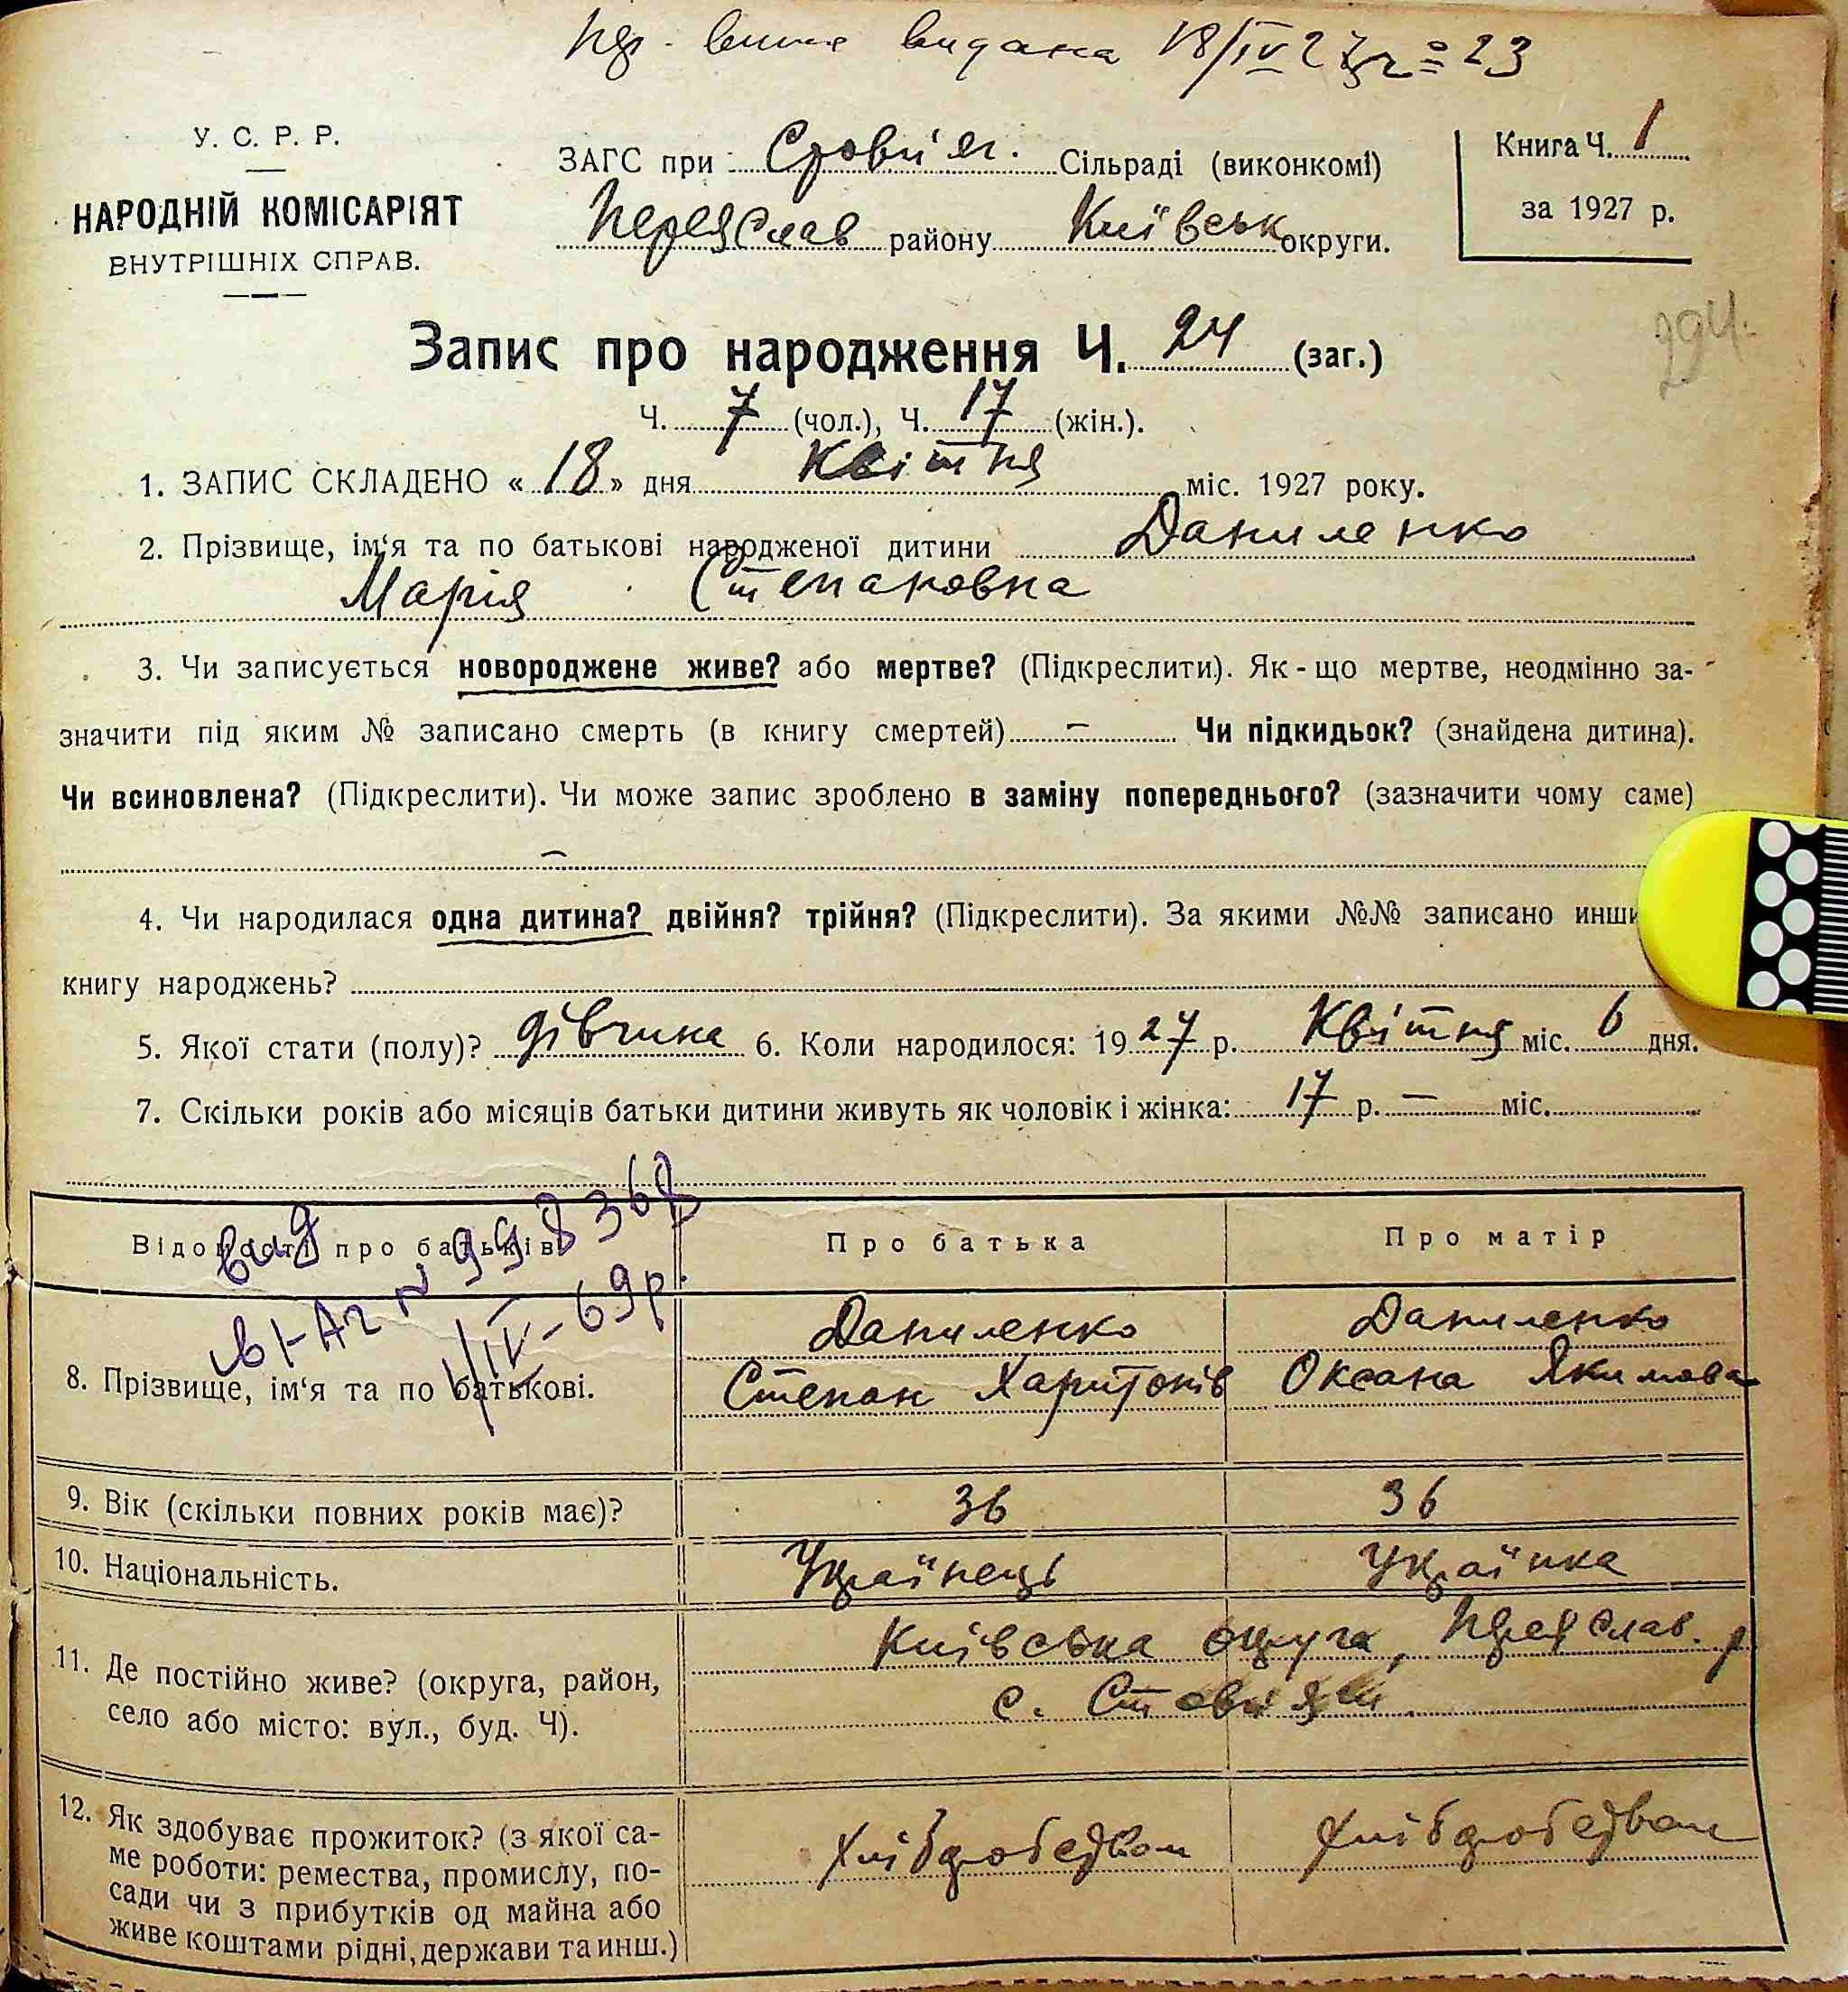 видана 18/IV 27р. = 23
У. С. Р. Р.
НАРОДНІЙ КОМІСАРІЯТ
ВНУТРІШНІХ СПРАВ.
ЗАГС при Сільраді (виконкомі)
Переяслав району Київськ округи.
Книга Ч. 1
за 1927 р.
294.
Запис про народження Ч. 24 (заг.)
Ч. 7 (чол.), Ч. 17 (жін.).
1. ЗАПИС СКЛАДЕНО « 18 » дня Квітня міс. 1927 року.
2. Прізвище, ім‘я та по батькові народженої дитини Даниленко
Марія Степановна
3. Чи записується новороджене живе? або мертве? (Підкреслити). Як - що мертве, неодмінно за-
значити під яким № записано смерть (в книгу смертей) — Чи підкидьок? (знайдена дитина).
Чи всиновлена? (Підкреслити). Чи може запис зроблено в заміну попереднього? (зазначити чому саме)
—
4. Чи народилася одна дитина? двійня? трійня? (Підкреслити). За якими №№ записано инши
книгу народжень?
5. Якої стати (полу)? дівчина 6. Коли народилося: 1927 р. Квітня міс. 6 дня.
7. Скільки років або місяців батьки дитини живуть як чоловік і жінка: 17 р. — міс.
Відомості про батьків Про батька Про матір
вид
1/IV-69р.
8. Прізвище, ім‘я та по батькові. Даниленко Степан Харитонів Даниленко Оксана Якимова
9. Вік (скільки повних років має)? 36 36
10. Національність. Українець Українка
11. Де постійно живе? (округа, район, Київська округа, Переяслав. р
село або місто: вул., буд. Ч). с.
12. Як здобуває прожиток? (з якої са-
ме роботи: ремества, промислу, по-
сади чи з прибутків од майна або
живе коштами рідні, держави та инш.)
Хліборобством Хліборобством